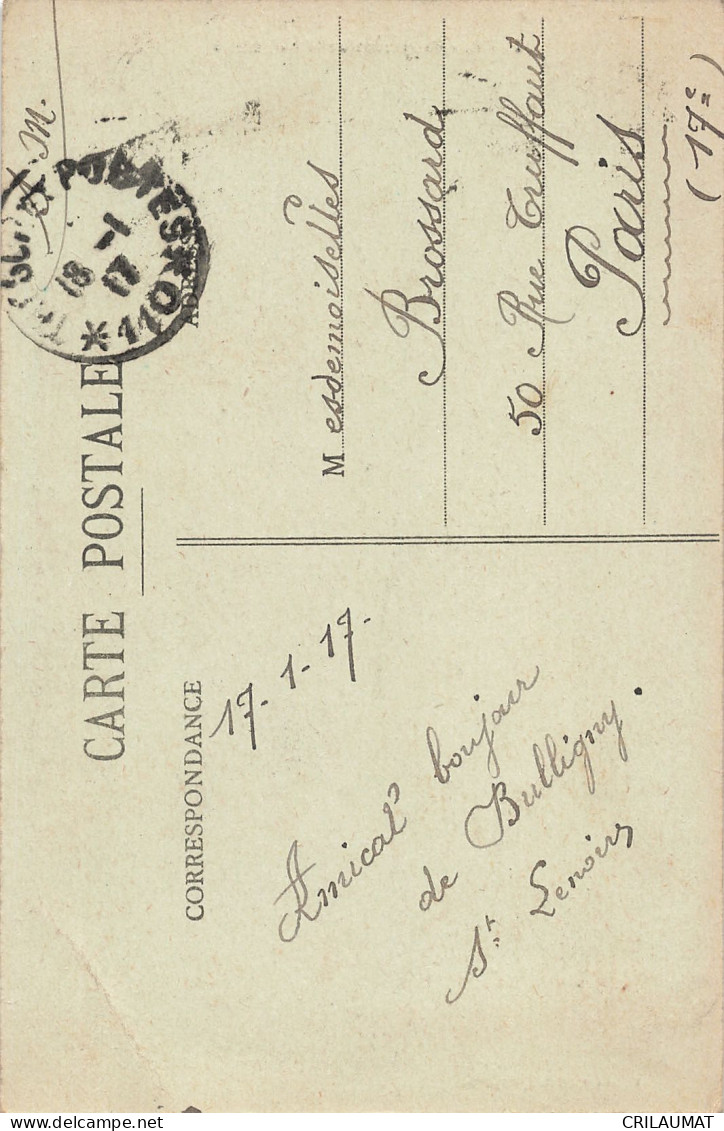 F. M.
TRÉSOR ET POSTES * 110 *
18 -1
17
CARTE POSTALE
CORRESPONDANCE
ADRESSE
17-1-17-
Amical bonjour
de Bulligny.
St Lenoir
Mesdemoiselles
Brossard
50 Rue Truffaut
Paris
(17e)
CRILAUMAT